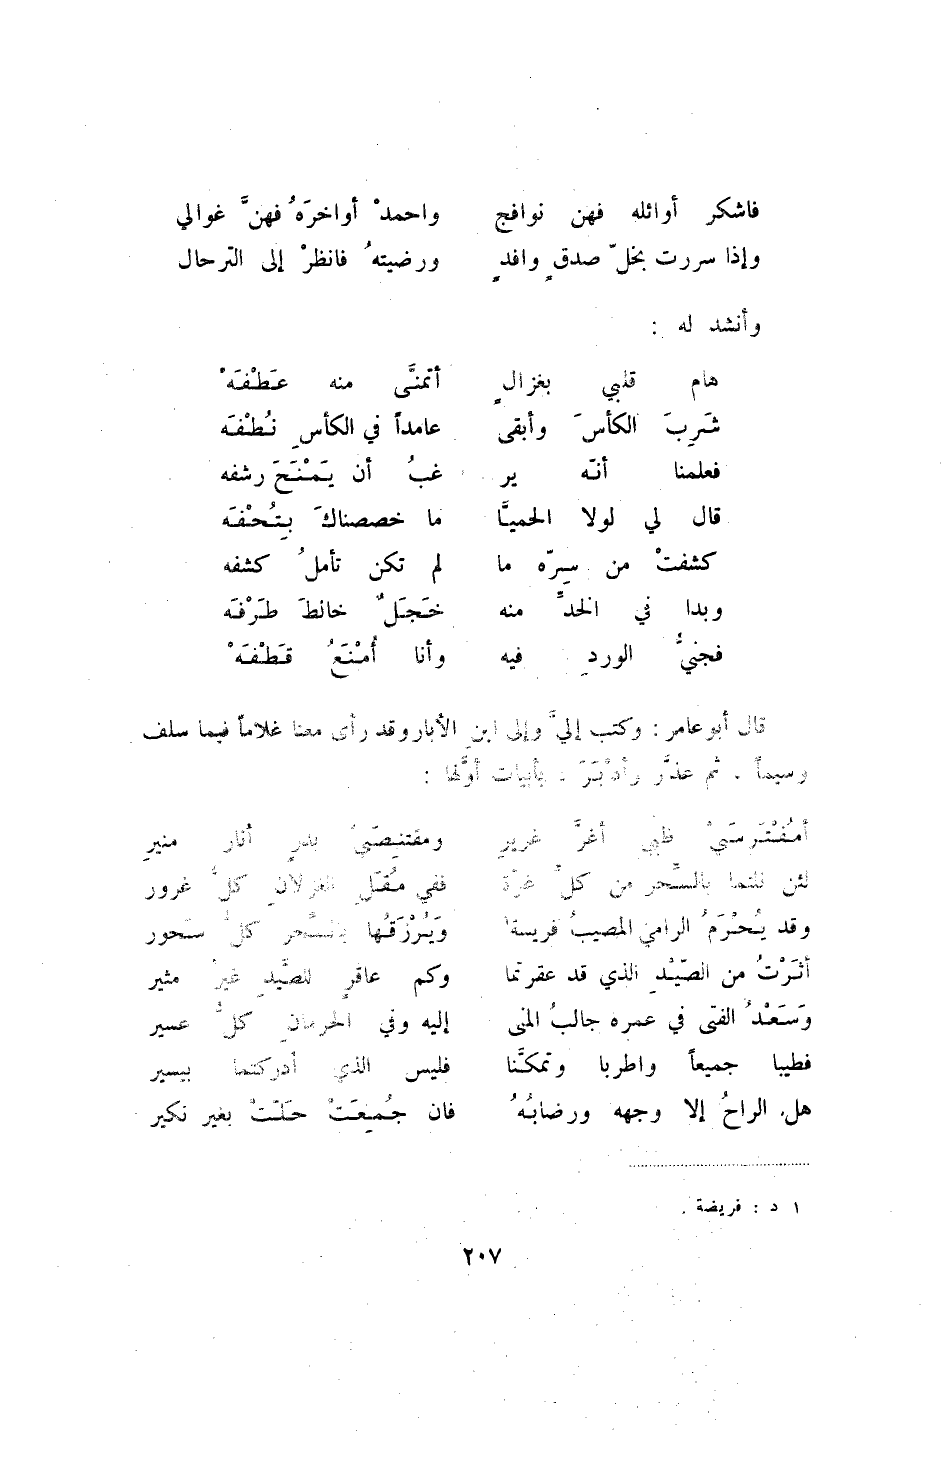 فاشكر أوائله فهن نوافج واحمدْ أواخرَهُ فهنَّ غوالي
وإذا سررت بخلّ صدقٍ وافدٍ ورضيتهُ فانظرْ إلى الترحال
وأنشد له :
هام قلبي بغزالٍ أتمنَّى منه عَطْفَهْ
شَرِبَ الكأسَ وأبقى عامداً في الكأسِ نُطْفَه
فعلمنا أنّه ير غبُ أن يَمْنَحَ رشفه
قال لي لولا الحميَّا ما خصصناكَ بِتُحْفَه
كشفتْ من سِرّه ما لم تكن تأملُ كشفه
وبدا في الخدِّ منه خَجَلٌ خالطَ طَرْفَه
فجنيُّ الوردِ فيه وأنا أُمْنَعُ قَطْفَهْ
قال أبو عامر : وكتب إليَّ وإلى ابنِ الأبار وقد رأى معنا غلاماً فيما سلف
وسيماً . ثم عذَّر وأدْبَرَ . بأبيات أوَّلها :
أمُفْتَرِسَيْ ظبيٍ أغرَّ غريرِ ومقتنِصَيْ بدرٍ أنار منيرِ
لئن نلتما بالسِّحر من كلِّ غرّة ففي مُقَلِ الغزلانِ كلُّ غرور
وقد يُحْرَمُ الرامي المصيبُ فريسة١ وَيُرْزَقُها بالسِّحر كلُّ سَحور
أثَرْتُ من الصّيْدِ الذي قد عقرتما وكم عاقرٍ للصَّيدِ غيرُ مثير
وَسَعْدُ الفتى في عمره جالبُ المنى إليه وفي الحرمانِ كلُّ عسير
فطيبا جميعاً واطربا وتمكَّنا فليس الذي أدركتما بيسير
هل الراحُ إلا وجهه ورضابُهُ فان جُمِعَتْ حَلّتْ بغير نكير
١ د : فريضة .
٢٠٧